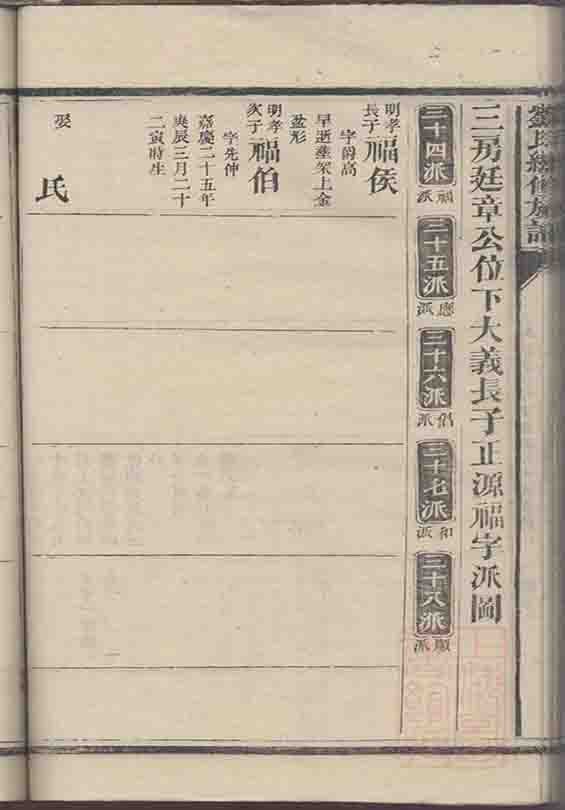 三房廷章公位下大義長子正源福字派圖
三十四派
福派
三十五派
應派
三十六派
三十七派
和派
三十八派
順派
明孝長子福侯
字爵高
早逝塟架上金
盆形
明孝次子福伯
字先仲
嘉慶二十五年
庚辰三月二十
二寅時生
娶 氏